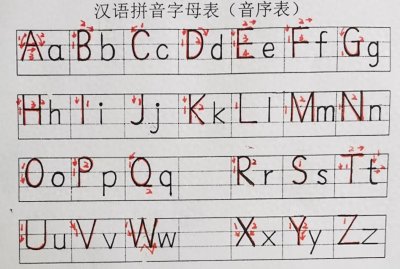 汉语拼音字母表（音序表）
Aa Bb Cc Dd Ee Ff Gg
Hh Ii Jj Kk Ll Mm Nn
Oo Pp Qq Rr Ss Tt
Uu Vv Ww Xx Yy Zz